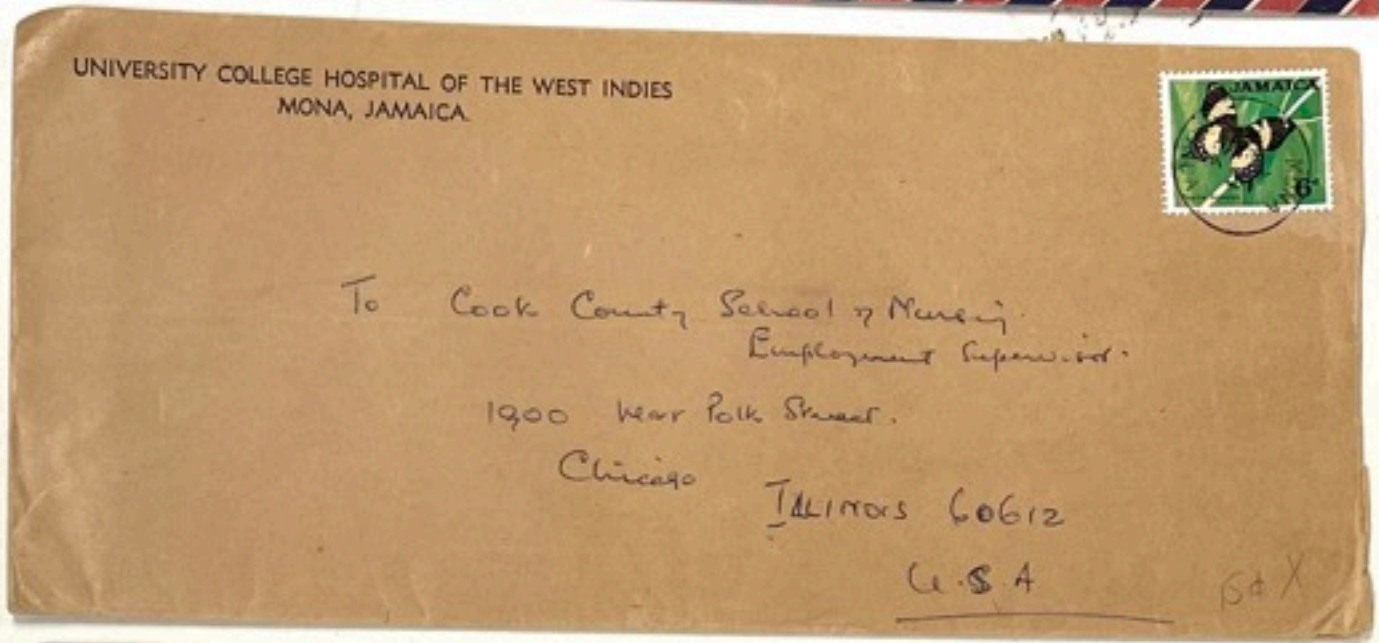 UNIVERSITY COLLEGE HOSPITAL OF THE WEST INDIES
MONA, JAMAICA
JAMAICA
6d
To Cook County School of Nursing.
Employment Supervisor.
1900 West Polk Street.
Chicago
ILLINOIS 60612
U.S.A
15¢ X